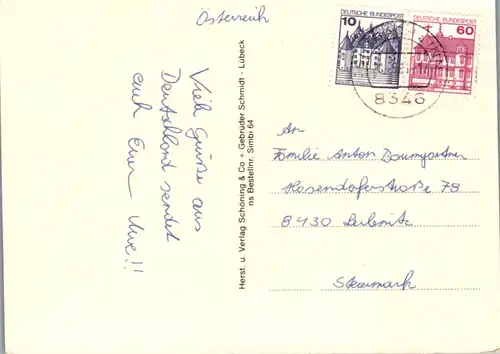 Österreich
Viele Grüße aus
Deutschland sendet
euch Euer Uwe!!
Herst. u. Verlag Schöning & Co + Gebrüder Schmidt - Lübeck
ns Bestellnr. Simbi 64
10
DEUTSCHE BUNDESPOST
DEUTSCHE BUNDESPOST
60
8346
An
Familie Anton Baumgartner
Hasendorferstraße 78
8430 Leibnitz
Steiermark